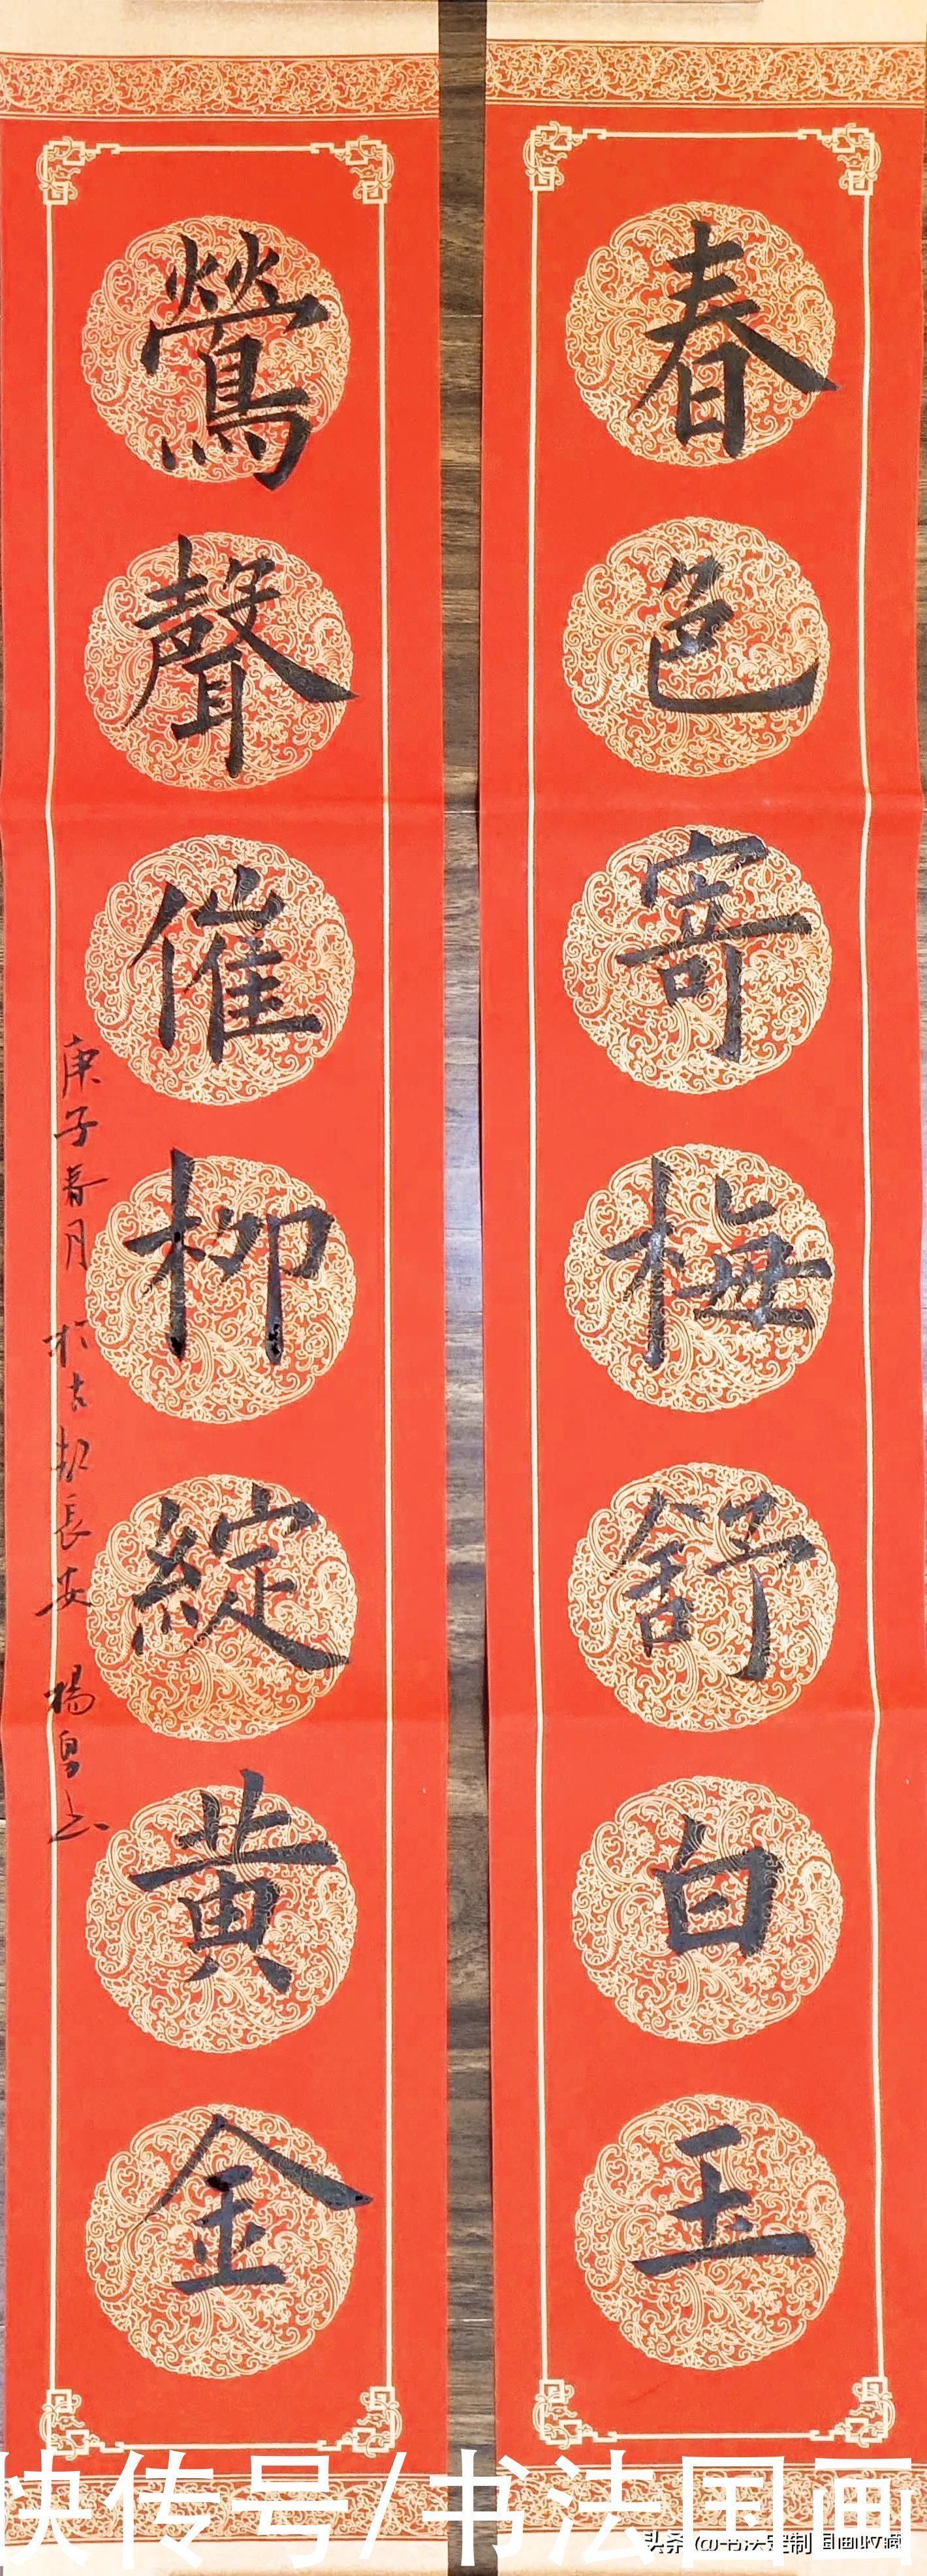 春色寄梅舒白玉
鶯聲催柳綻黄金
庚子春月於古都長安楊
快传号/书法国画
头条@书法定制国画收藏